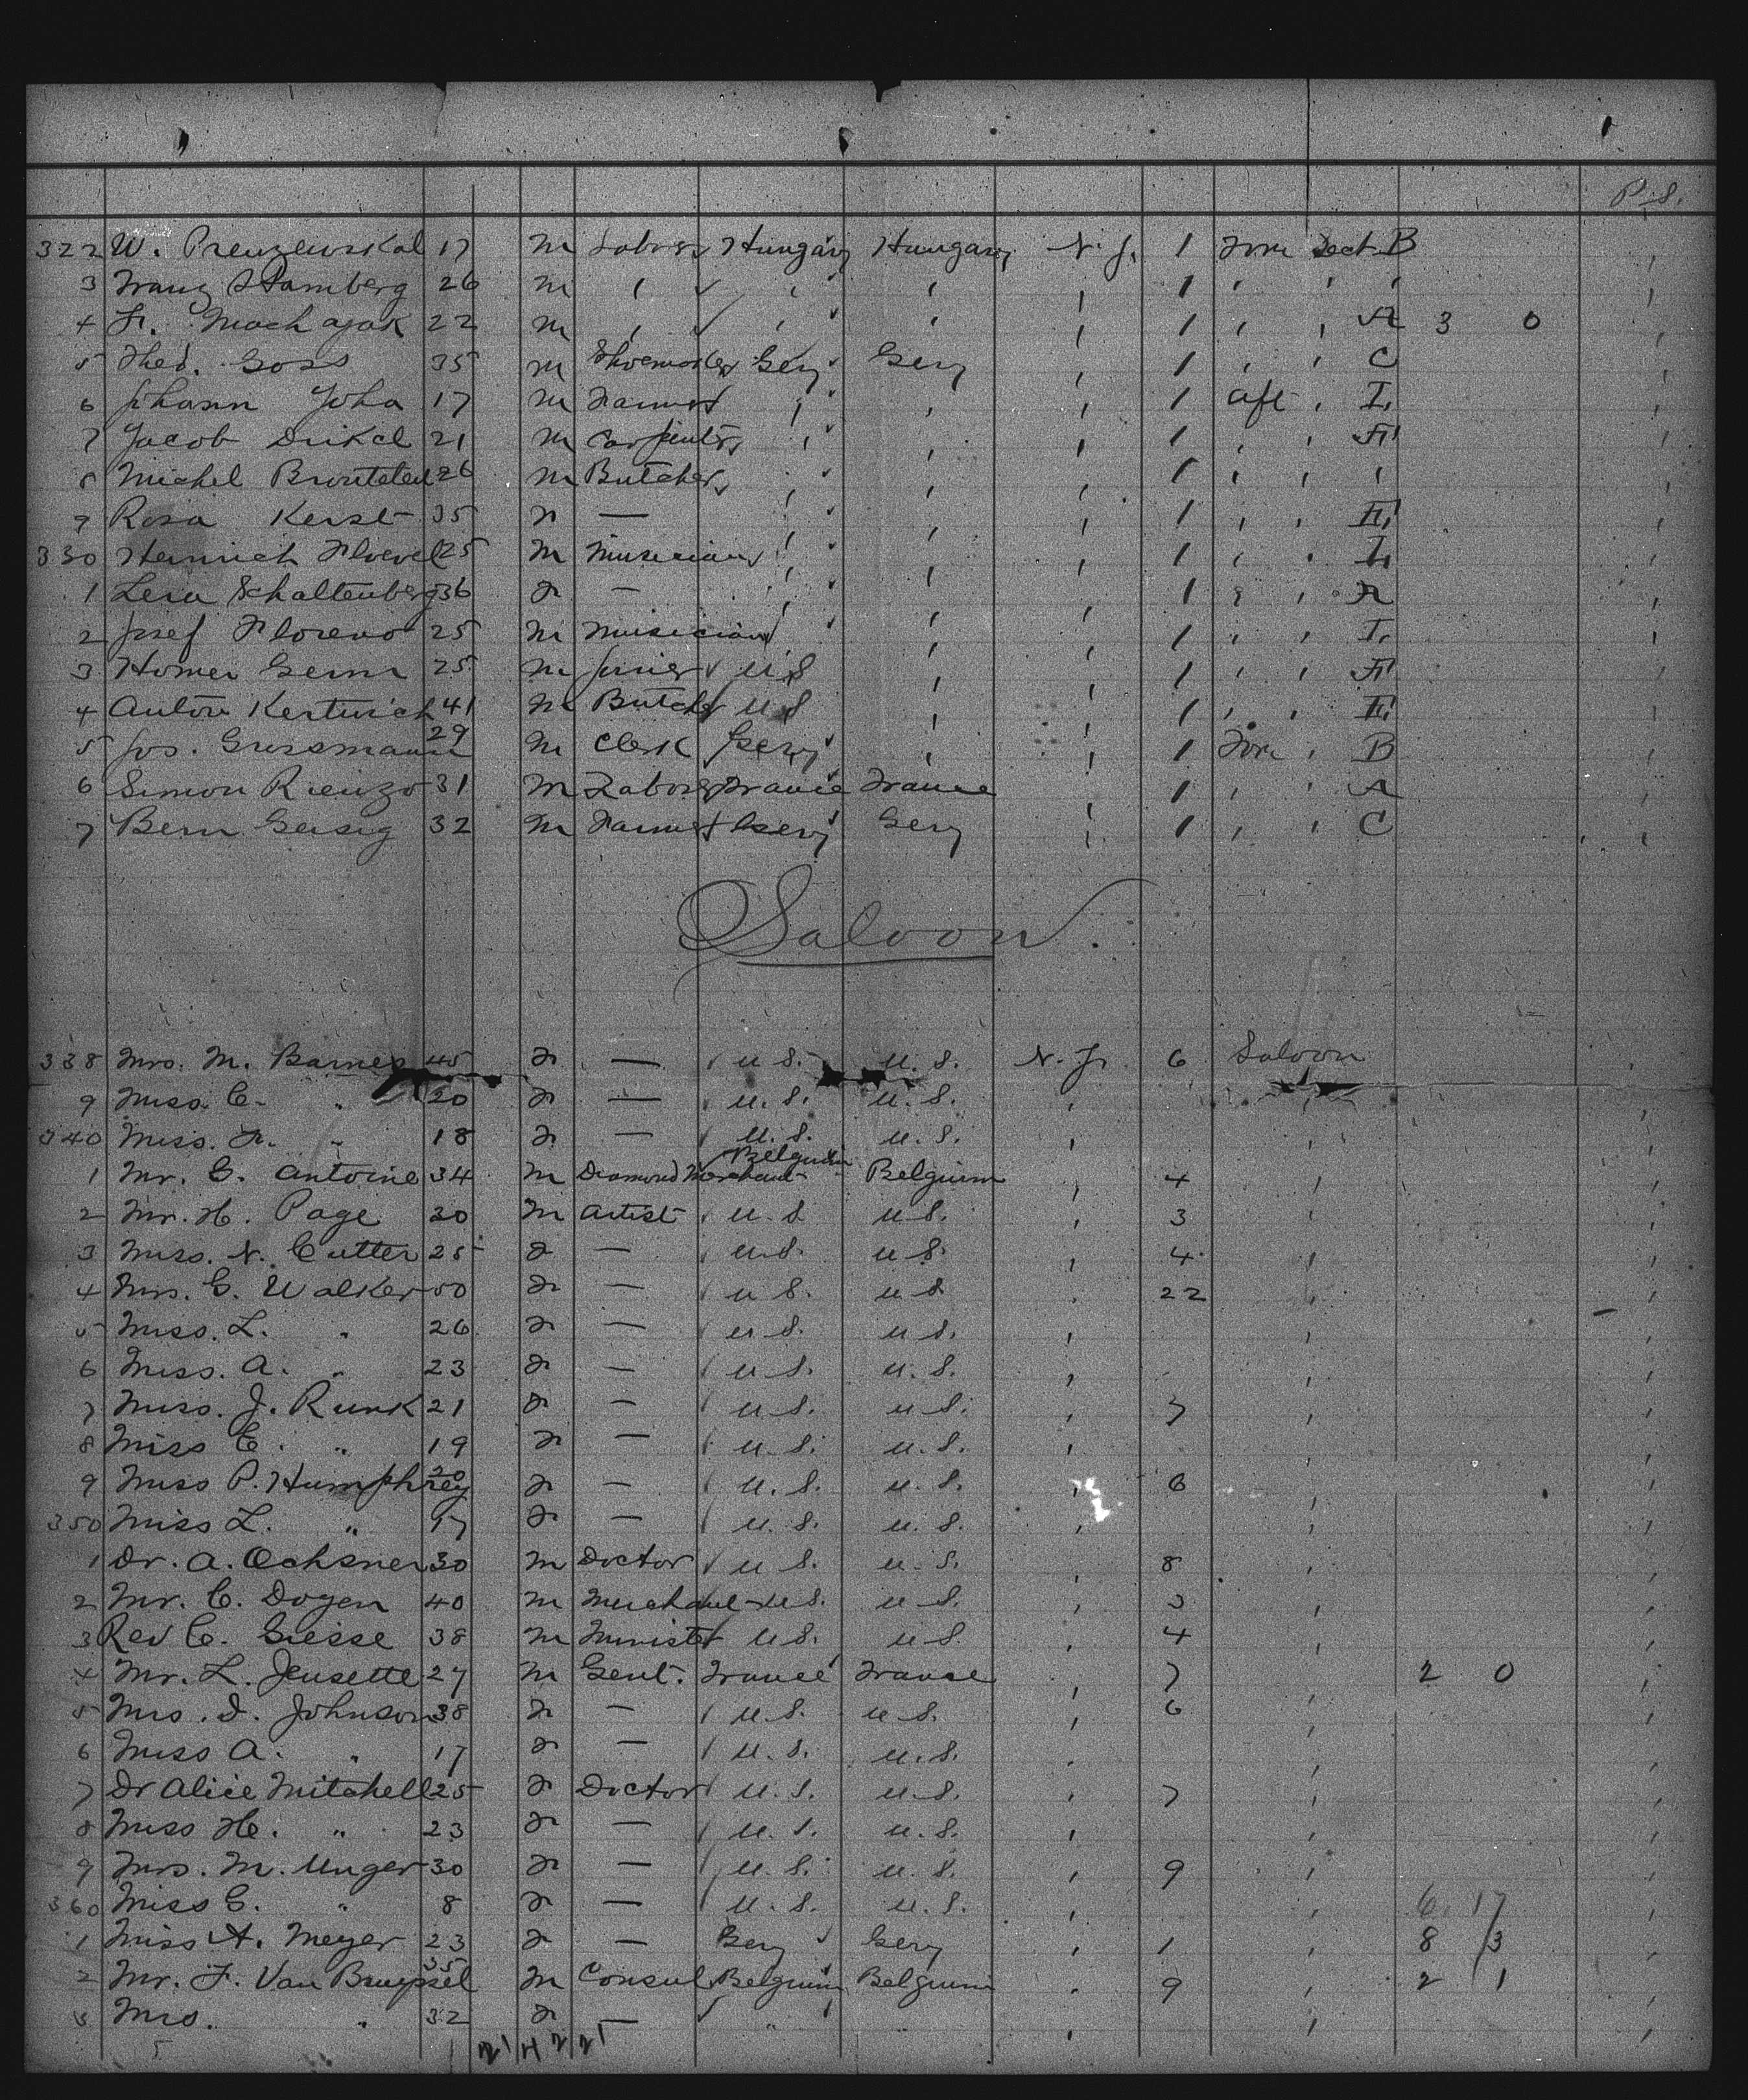 P.S.
322 W. Preuzewskal 17 M Labor Hungary Hungary N.Y. 1 Fore Deck B
3 Franz Stamberg 26 M " " " " 1 " " "
4 Fr. Machajak 22 M " " " " 1 " " A 3 0
5 Theo. Goss 35 M Shoemaker Gery Gery " 1 " " C
6 Johann Joha 17 M Farmer " " " 1 Aft " I.
7 Jacob Dukel 21 M Carpenter " " " 1 " "
8 Michel 26 M Butcher " " " 1 " " "
9 Rosa Kerst 35 F — " " " 1 " "
330 Heinrich 25 M Musician " " " 1 " " I.
1 Lena Schaltenberg 36 F — " " " 1 " " A
2 Josef Floreno 25 M Musician " " " 1 " " I.
3 Homer Germ 25 M U S " " 1 " "
4 Anton Kerturich 41 M Butcher U S " " 1 " "
5 Jos. Grossmann 29 M Clerk Gery " " 1 Fore " B
6 Simon Rienzo 31 M Labor France France " 1 " " A
7 Bern Gersig 32 M Farmer Gery Gery " 1 " " C
Saloon.
338 Mrs. M. Barnes 45 F — U S. U. S. N. Y. 6 Saloon
9 Miss. C. " 20 F — U. S. U. S. " "
340 Miss. F. " 18 F — U. S. U. S. " "
1 Mr. C. Antoine 34 M Diamond Merchant Belgium Belgium " 4 "
2 Mr. H. Page 30 M Artist U. S U S. " 3 "
3 Miss. N. Cutter 25 F — U S. U S. " 4 "
4 Mrs. C. Walker 50 F — U S. U S " 22 "
5 Miss. L. " 26 F — U S. U S. " "
6 Miss. A. " 23 F — U S. U. S. " "
7 Miss. J. Runk 21 F — U S. U S. " 7 "
8 Miss C. " 19 F — U. S. U. S. " "
9 Miss P. Humphrey 20 F — U. S. U. S. " 6 "
350 Miss L. " 17 F — U. S. U. S. " "
1 Dr. A. Ochsner 30 M Doctor U S. U. S. " 8 "
2 Mr. C. Dogen 40 M Merchant U S. U S. " 3 "
3 Rev C. Giesse 38 M Minister U S. U S. " 4 "
4 Mr. L. Jeusette 27 M Gent. France France " 7 " 2 0
5 Mrs. D. Johnson 38 F — U S. U S. " 6 "
6 Miss A. " 17 F — U. S. U. S. " "
7 Dr Alice Mitchell 25 F Doctor U. S. U. S. " 7 "
8 Miss H. " 23 F — U. S. U. S. " "
9 Mrs. M. Unger 30 F — U. S. U. S. " 9 "
360 Miss C. " 8 F — U. S. U. S. " " 6 17
1 Miss A. Meyer 23 F — Gery Gery " 1 " 8 /3
2 Mr. F. Van Bruyssel 35 M Consul Belgium Belgium " 9 " 2 1
3 Mrs. " 32 F — " " " "